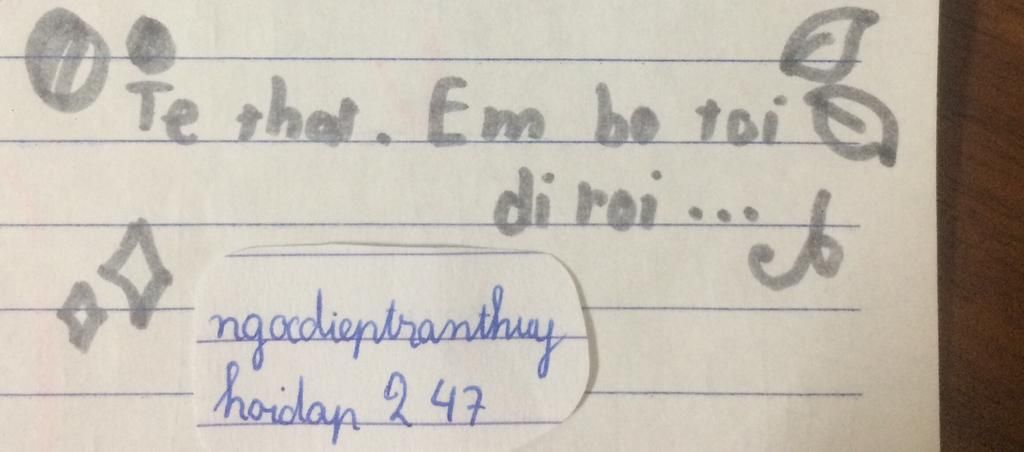 Te that. Em bo toi
di roi...
ngocdieptranthuy
hoidap 247